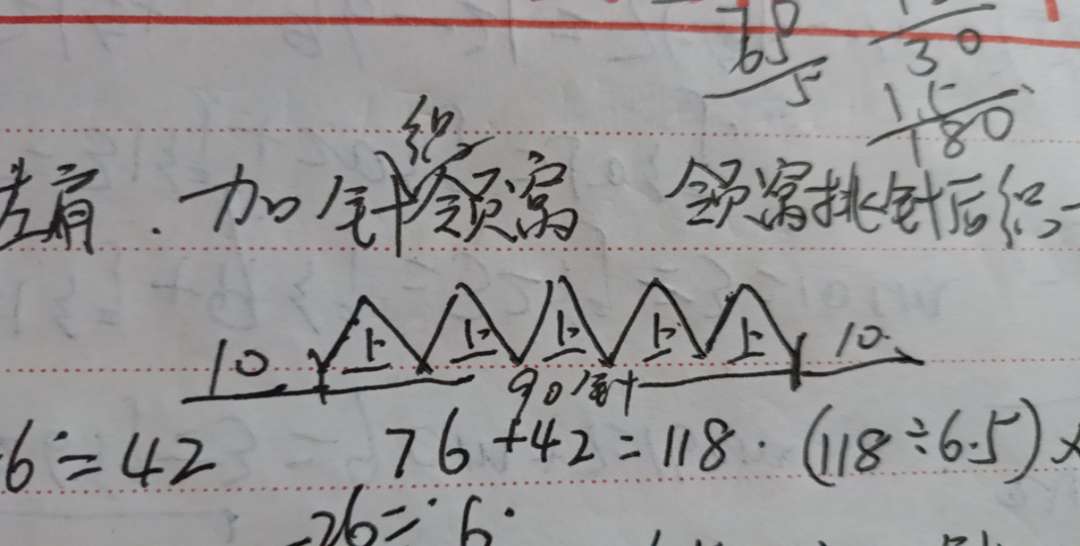 5
30
180
织
左肩. 加针领窝 领窝挑针后织
10 上 上 上 上 上 10
90针
6=42 76+42=118. (118÷6.5)
26= 6.